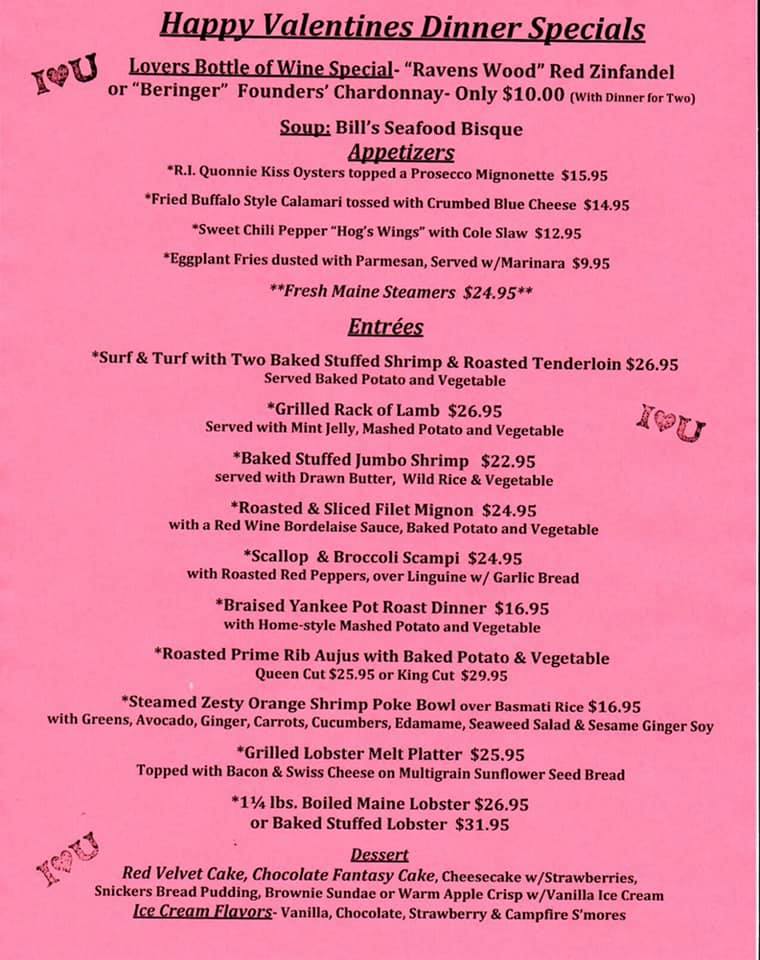 Happy Valentines Dinner Specials
I♥U
Lovers Bottle of Wine Special- “Ravens Wood” Red Zinfandel
or “Beringer” Founders’ Chardonnay- Only $10.00 (With Dinner for Two)
Soup: Bill’s Seafood Bisque
Appetizers
*R.I. Quonnie Kiss Oysters topped a Prosecco Mignonette $15.95
*Fried Buffalo Style Calamari tossed with Crumbed Blue Cheese $14.95
*Sweet Chili Pepper “Hog’s Wings” with Cole Slaw $12.95
*Eggplant Fries dusted with Parmesan, Served w/Marinara $9.95
**Fresh Maine Steamers $24.95**
Entrées
*Surf & Turf with Two Baked Stuffed Shrimp & Roasted Tenderloin $26.95
Served Baked Potato and Vegetable
*Grilled Rack of Lamb $26.95
Served with Mint Jelly, Mashed Potato and Vegetable
I♥U
*Baked Stuffed Jumbo Shrimp $22.95
served with Drawn Butter, Wild Rice & Vegetable
*Roasted & Sliced Filet Mignon $24.95
with a Red Wine Bordelaise Sauce, Baked Potato and Vegetable
*Scallop & Broccoli Scampi $24.95
with Roasted Red Peppers, over Linguine w/ Garlic Bread
*Braised Yankee Pot Roast Dinner $16.95
with Home-style Mashed Potato and Vegetable
*Roasted Prime Rib Aujus with Baked Potato & Vegetable
Queen Cut $25.95 or King Cut $29.95
*Steamed Zesty Orange Shrimp Poke Bowl over Basmati Rice $16.95
with Greens, Avocado, Ginger, Carrots, Cucumbers, Edamame, Seaweed Salad & Sesame Ginger Soy
*Grilled Lobster Melt Platter $25.95
Topped with Bacon & Swiss Cheese on Multigrain Sunflower Seed Bread
*1¼ lbs. Boiled Maine Lobster $26.95
or Baked Stuffed Lobster $31.95
I♥U
Dessert
Red Velvet Cake, Chocolate Fantasy Cake, Cheesecake w/Strawberries,
Snickers Bread Pudding, Brownie Sundae or Warm Apple Crisp w/Vanilla Ice Cream
Ice Cream Flavors- Vanilla, Chocolate, Strawberry & Campfire S’mores